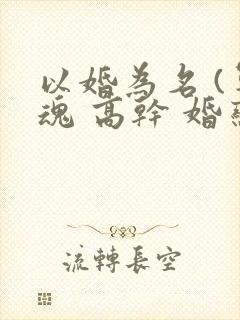 以婚為名(
魂 高幹 婚
流轉長空